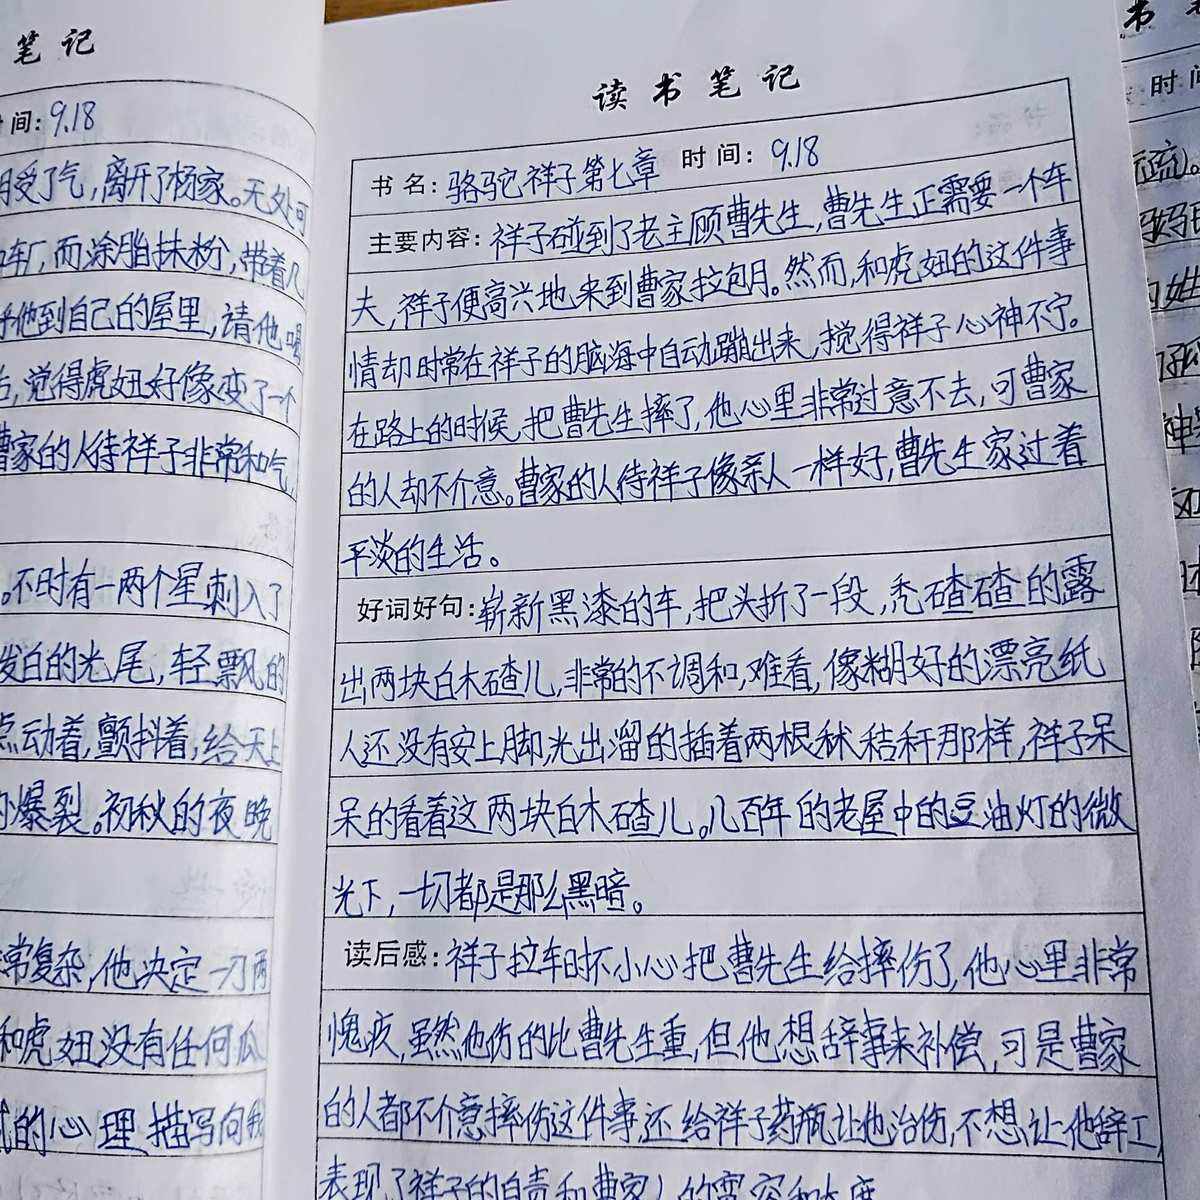 笔记
间: 9.18
受了气,离开了杨家。无处可
车厂,而涂脂抹粉,带着几
他到自己的屋里,请他喝
,觉得虎妞好像变了一个
曹家的人待祥子非常和气,
。不时有一两个星刺入了
发白的光尾,轻飘的
点动着,颤抖着,给天上
的爆裂。初秋的夜晚
常复杂,他决定一刀两
和虎妞没有任何瓜
的心理描写向我
读书笔记
书名: 骆驼祥子第七章 时间: 9.18
主要内容: 祥子碰到了老主顾曹先生,曹先生正需要一个车
夫,祥子便高兴地来到曹家拉包月。然而,和虎妞的这件事
情却时常在祥子的脑海中自动蹦出来,搅得祥子心神不宁。
在路上的时候,把曹先生摔了,他心里非常过意不去,可曹家
的人却不介意。曹家的人待祥子像亲人一样好,曹先生家过着
平淡的生活。
好词好句: 崭新黑漆的车,把头折了一段,秃碴碴的露
出两块白木碴儿,非常的不调和,难看,像糊好的漂亮纸
人还没有安上脚,光出溜的插着两根秫秸秆那样,祥子呆
呆的看着这两块白木碴儿。几百年的老屋中的豆油灯的微
光下,一切都是那么黑暗。
读后感: 祥子拉车时不小心把曹先生给摔伤了,他心里非常
愧疚,虽然他伤的比曹先生重,但他想辞事来补偿,可是曹家
的人都不介意摔伤这件事,还给祥子药瓶让他治伤,不想让他辞工,
表现了祥子的自责和曹家人的宽容和大度
书
时间
流。
妈
姓
神